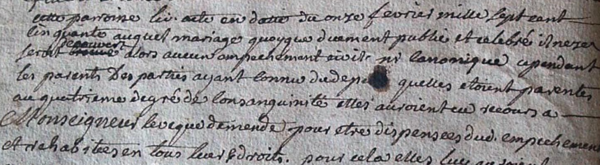 cette paroisse lad. acte en datte du onze fevrier mille sept cent
cinquante auquel mariage quoyque duement publié et celebré il neze
seroit decouvert alors aucun empechement civil ni canonique cependant
les parents des parties ayant connu du depuis quelles etoient parentes
au quatrieme degré de consanguinité elles auroient eu recours a
Monseigneur leveque de mende pour etre dispensees dud. empechement
et rehabilités en tous leurs droits. pour cela elles luy